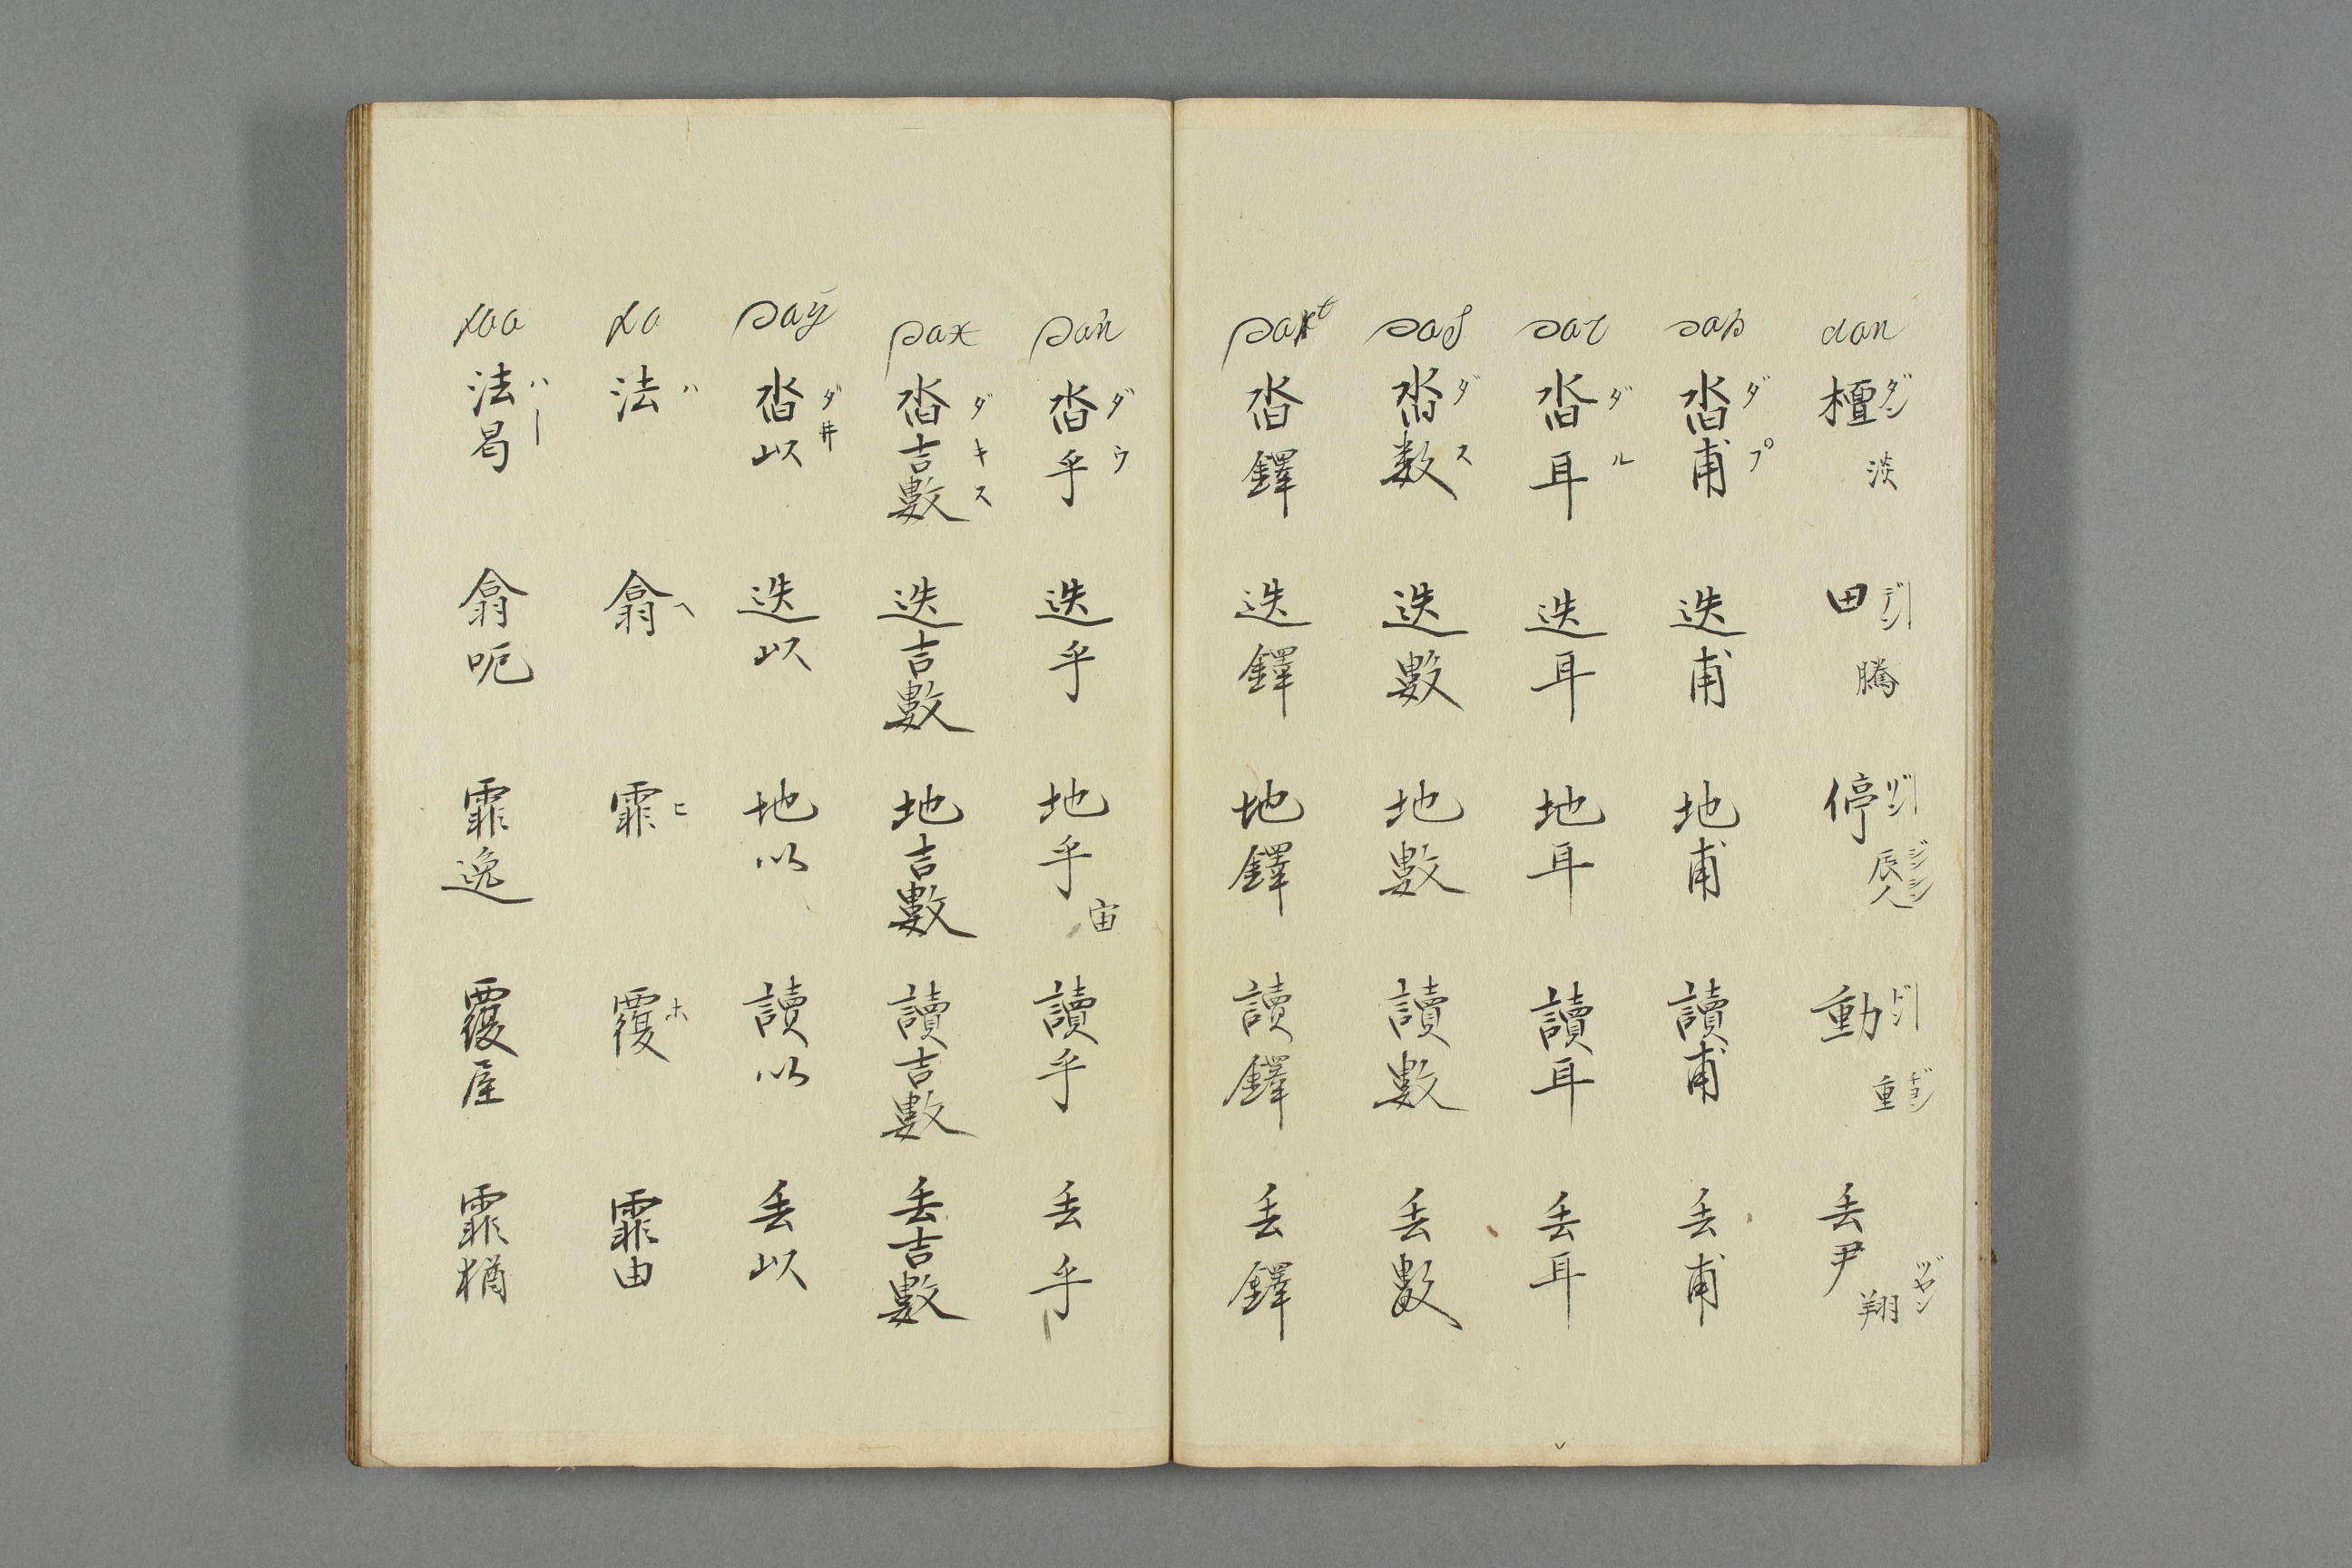 dan 檀 ダン 淡 田 デーン 騰 停 ヂーン 辰 ジン 人 ジン 動 ドーン 重 ヂョン 丢尹 翔 ヅヤン
dap 沓甫 ダプ 迭甫 地甫 讀甫 丢甫
dar 沓耳 ダル 迭耳 地耳 讀耳 丢耳
das 沓数 ダス 迭數 地數 讀數 丢數
dakt 沓鐸 迭鐸 地鐸 讀鐸 丢鐸
daú 沓乎 ダウ 迭乎 地乎 宙 讀乎 丢乎
dax 沓吉數 ダキス 迭吉數 地吉數 讀吉數 丢吉數
daÿ 沓以 ダ井 迭以 地以 讀以 丢以
法 ハ 翕 ヘ 霏 ヒ 覆 ホ 霏由
法曷 ハー 翕呃 霏逸 覆屋 霏猶